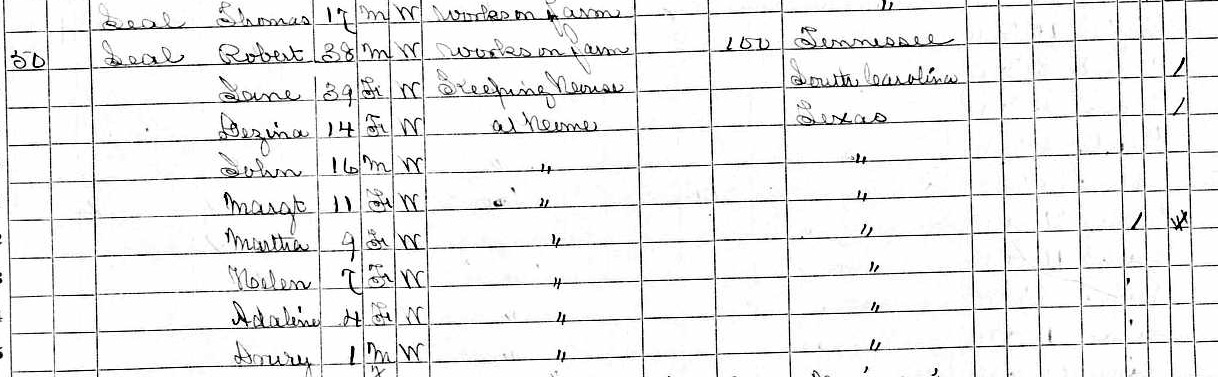 "
Seal Thomas 17 M W Works on farm
50 Seal Robert 38 M W Works on farm 150 Tennessee
Jane 39 F W Keeping House South Carolina /
14 F W at Home Texas /
John 16 M W " "
Margt 11 F W " "
Martha 9 F W " " /
Helen 7 F W " "
Adaline 4 F W " "
1 M W " "